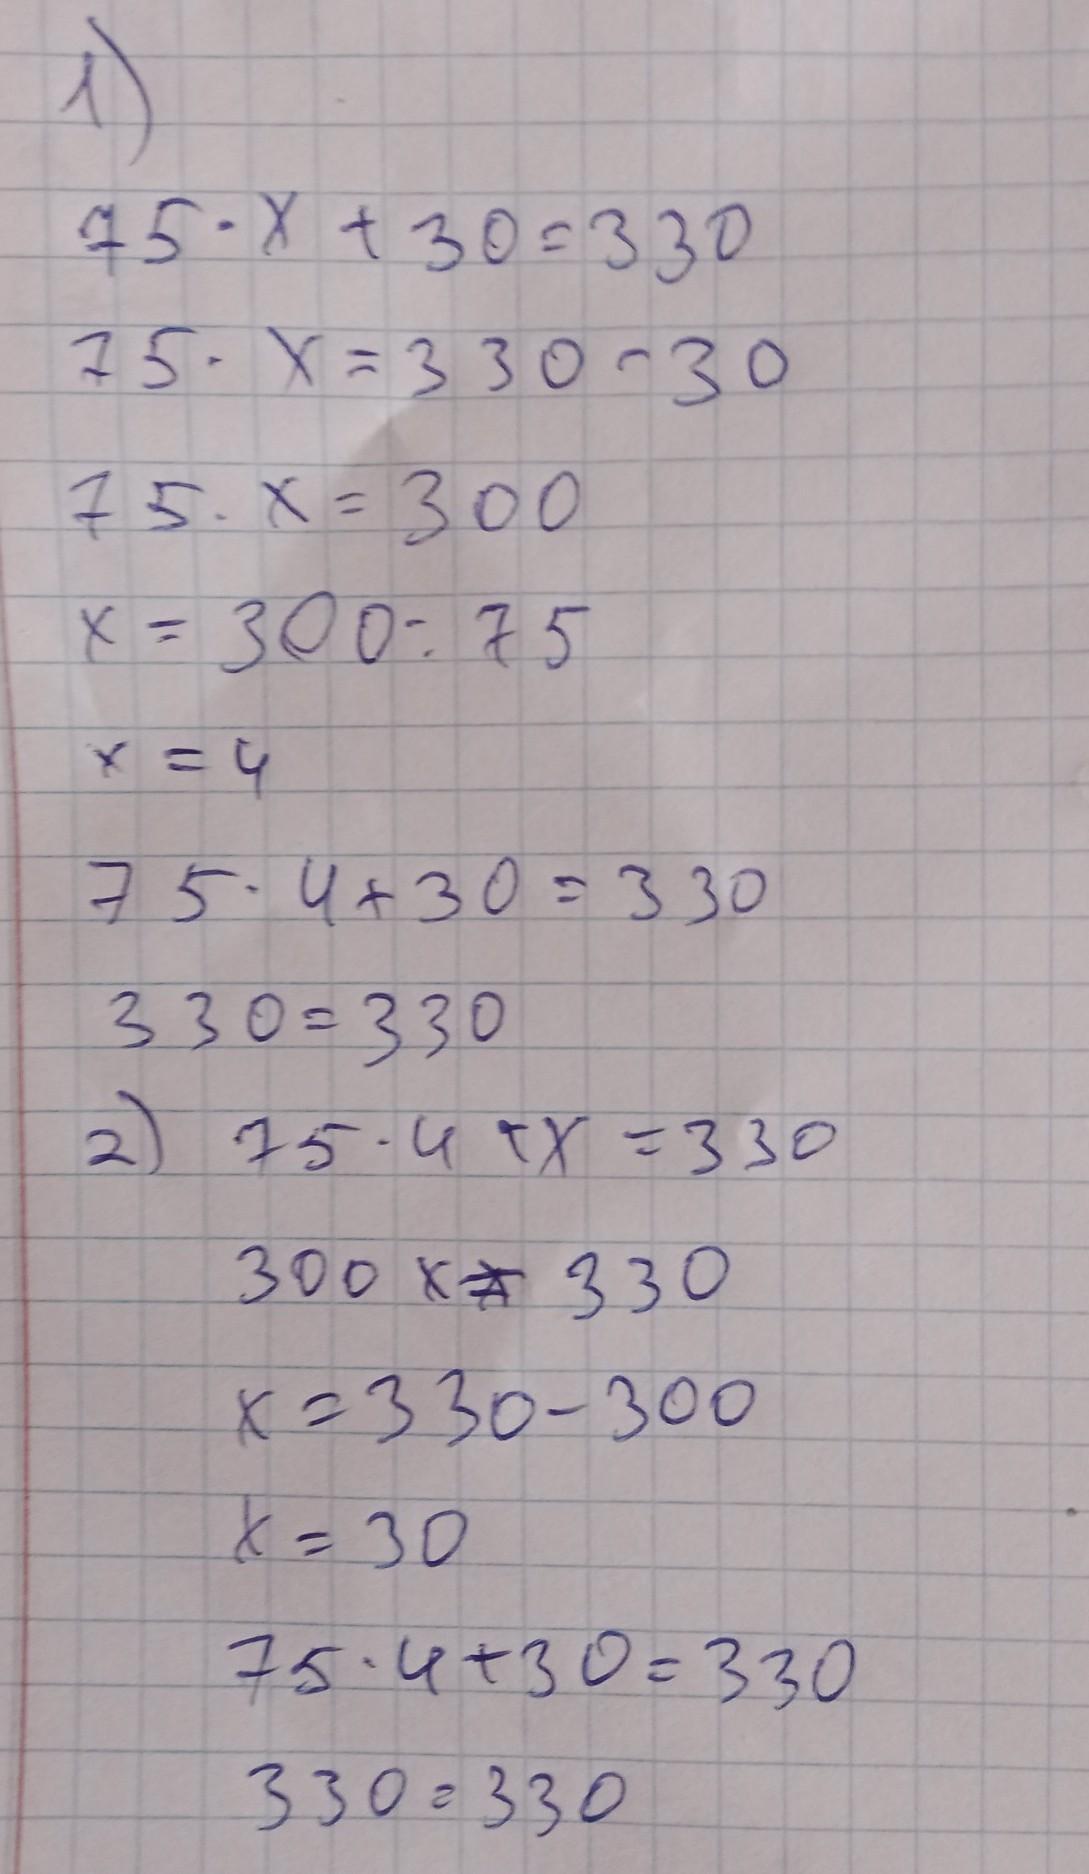 1)
75 · x + 30 = 330
75 · x = 330 - 30
75 · x = 300
x = 300 : 75
x = 4
75 · 4 + 30 = 330
330 = 330
2) 75 · 4 + x = 330
300 x = 330
x = 330 - 300
x = 30
75 · 4 + 30 = 330
330 = 330